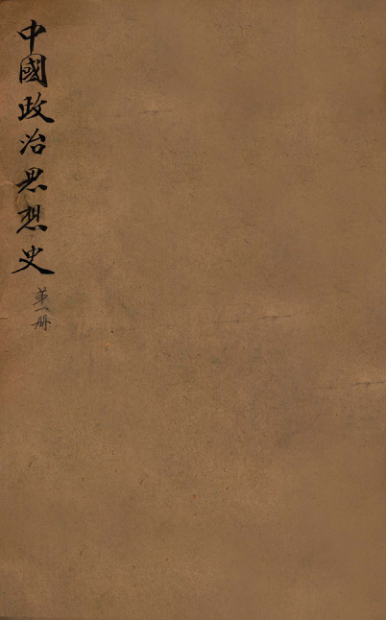 中國政治思想史
第一册